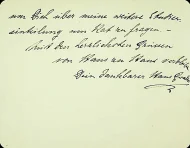 um Dich über meine weitere Studien-
einteilung um Rat zu fragen. –
Mit den herzlichsten Grüssen
von Haus zu Haus
Dein dankbarer Hans